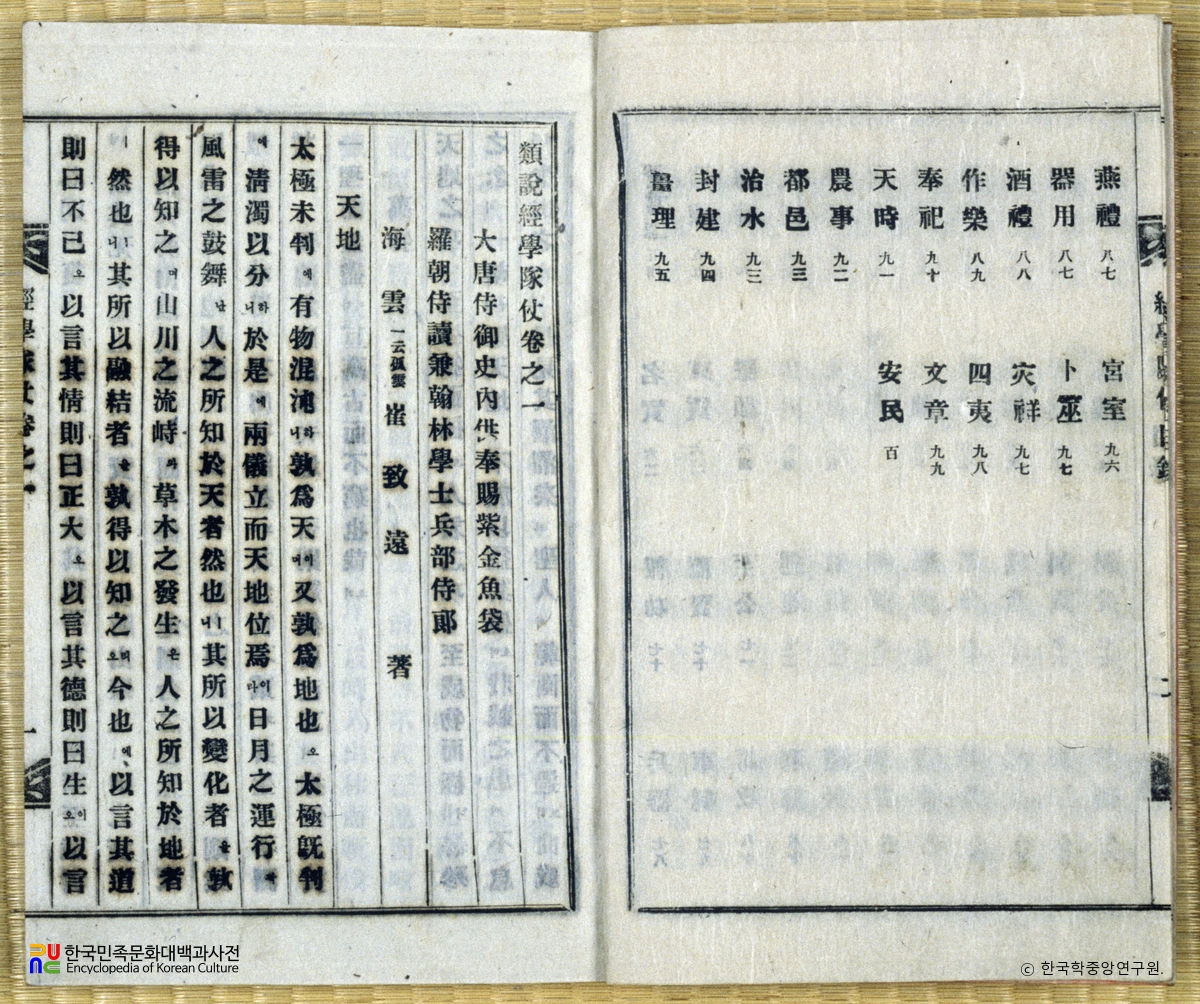 燕禮 八七
器用 八七
酒禮 八八
作樂 八九
奉祀 九十
天時 九一
農事 九二
都邑 九三
治水 九三
封建 九四
畺理 九五
宮室 九六
卜筮 九七
灾祥 九七
四夷 九八
文章 九九
安民 百
類說經學隊仗卷之一
大唐侍御史內供奉賜紫金魚袋
羅朝侍讀兼翰林學士兵部侍郎
海雲 一云孤雲 崔致遠 著
天地
太極未判에有物混沌하니孰爲天이며又孰爲地也오太極旣判
에淸濁以分하니於是에兩儀立而天地位焉이라日月之運行과
風雷之鼓舞난人之所知於天者然也ㅣ니其所以變化者을孰
得以知之며山川之流峙와草木之發生은人之所知於地者
ㅣ然也ㅣ니其所以融結者을孰得以知之리오今也에以言其道
則曰不已오以言其情則曰正大오以言其德則曰生이오以言
經學隊仗卷之一
一
한국민족문화대백과사전
Encyclopedia of Korean Culture
ⓒ 한국학중앙연구원.